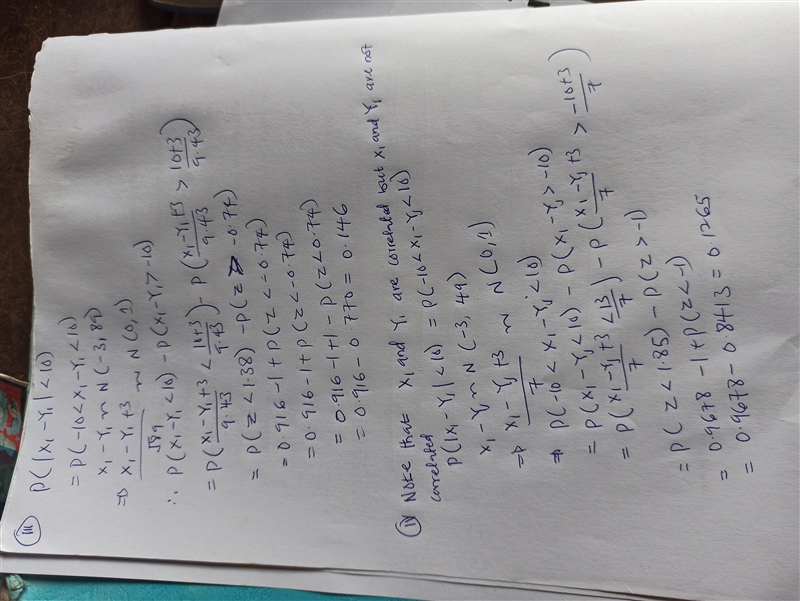 (iii) P(|X₁-Y₁|<10)
= P(-10<X₁-Y₁<10)
X₁-Y₁ ~ N(-3, 89)
⇒ (X₁-Y₁+3)/√89 ~ N(0,1)
∴ P(X₁-Y₁<10) - P(X₁-Y₁>-10)
= P((X₁-Y₁+3)/9.43 < (10+3)/9.43) - P((X₁-Y₁+3)/9.43 > (10+3)/9.43)
= P(Z<1.38) - P(Z > -0.74)
= 0.916-1+P(Z<-0.74)
= 0.916-1+P(Z<-0.74)
= 0.916-1+1-P(Z<0.74)
= 0.916-0.770=0.146
(iv) Note that X₁ and Y₁ are correlated but X₁ and Yⱼ are not
correlated
P(|X₁-Yⱼ|<10) = P(-10<X₁-Yⱼ<10)
X₁-Yⱼ ~ N(-3, 49)
⇒ (X₁-Yⱼ+3)/7 ~ N(0,1)
⇒ P(-10<X₁-Yⱼ<10)
= P(X₁-Yⱼ<10) - P(X₁-Yⱼ>-10)
= P((X₁-Yⱼ+3)/7 < 13/7) - P((X₁-Yⱼ+3)/7 > (-10+3)/7)
= P(Z<1.85) - P(Z>-1)
= 0.9678-1+P(Z<-1)
= 0.9678-0.8413=0.1265